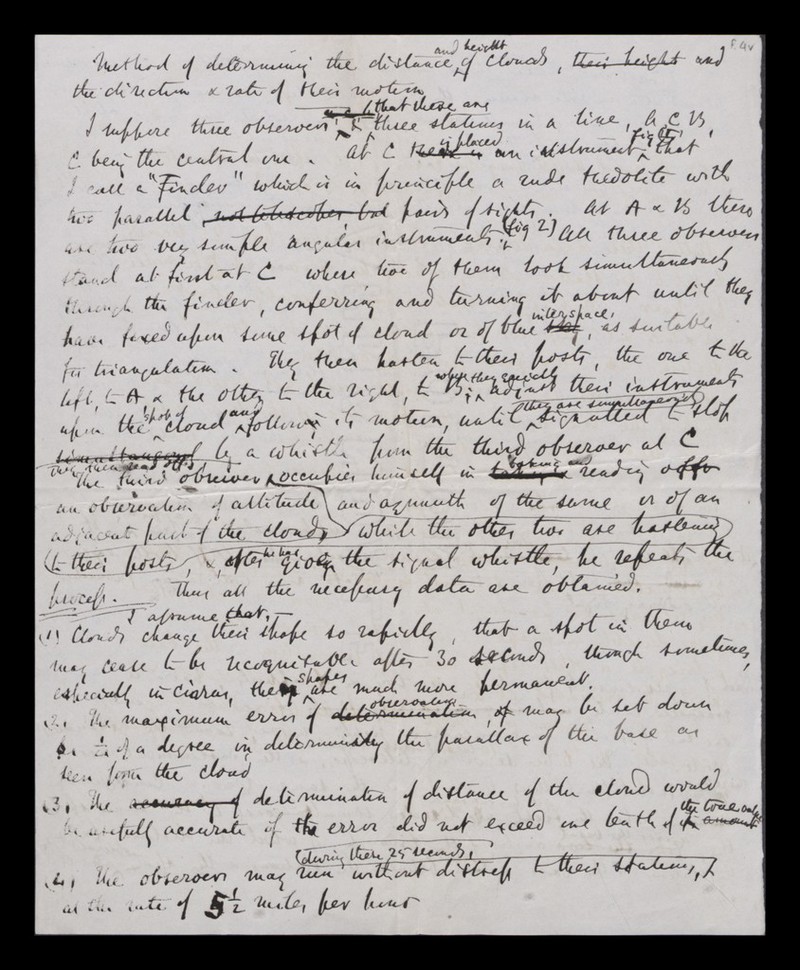 f. 4v
Method of determining the distance and height of clouds, ~~their height~~ and
the direction & rate of their motion
I suppose three observers, & that these are three stations in a line, A, C, B,
C being the central one. At C ~~there is~~ is placed an instrument, fig 1, that
I call a "Finder" which is in principle a rude thedolite with
two parallel ~~not telescopes, but~~ pairs of sights. At A & B there
are two very simple angular instruments. (fig 2) All three observers
stand at first at C where two of them look simultaneously
through the finder, conferring and turning it about until they
have fixed upon some spot of cloud or of blue interspace, as suitable
for triangulation. They then hasten to their posts, the one to the
left, to A & the other to the right, to B; when they quickly adjust their instruments
upon the spot of cloud and follow its motion, until they are simultaneously signalled to stop
~~simultaneously~~ by a whistle from the third observer at C
they then read off
The third observer occupies himself in ~~taking~~ making and reading off
an observation of altitude and azimuth of the same or of an
adjacent part of the clouds while the other two are hastening
to their posts, &, after he has given the signal whistle, he repeats the
process. Thus all the necessary data are obtained.
I assume that,—
(1) Clouds change their shape so rapidly, that a spot in them
may cease to be recognisable after 30 seconds, though sometimes,
especially in cirrus, the shapes are much more permanent.
(2) The maximum error of ~~determination~~ observation, may be set down
as ½ of a degree in determining the parallax of the base as
seen from the cloud
(3) The ~~accuracy of~~ determination of distance of the cloud would
be usefully accurate if the error did not exceed one tenth of the true only
(during these 25 seconds,)
(4) The observers may run without distress to their stations,
at the rate of 5½ miles per hour